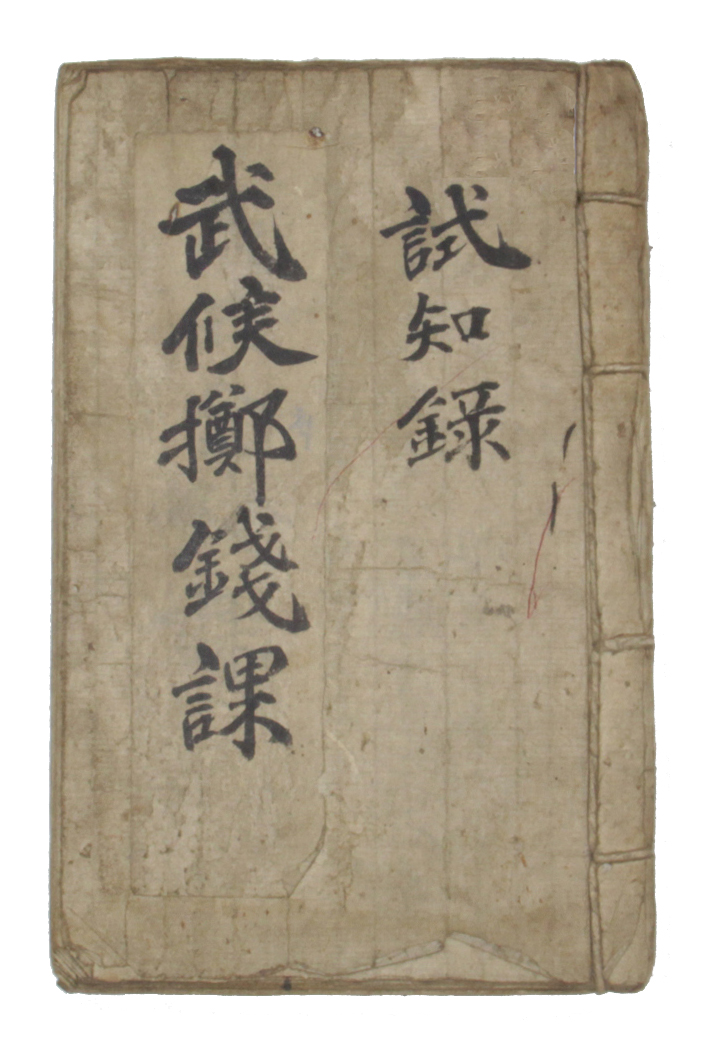 試知錄
武候擲錢課